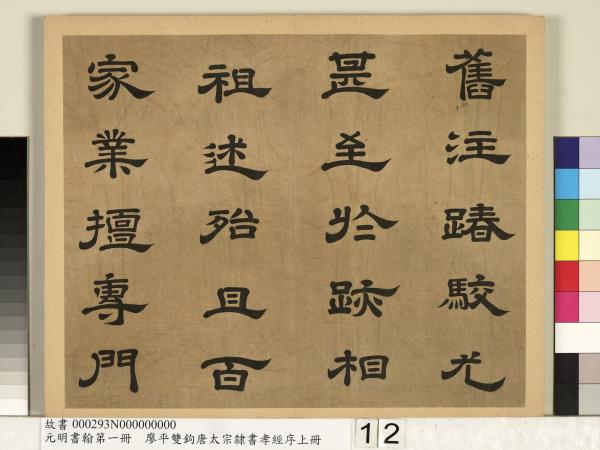 舊注踳駮尤
甚至於跡相
祖述殆且百
家業擅專門
故書 000293N000000000
元明書翰第一冊 廖平雙鈎唐太宗隸書孝經序上冊
12